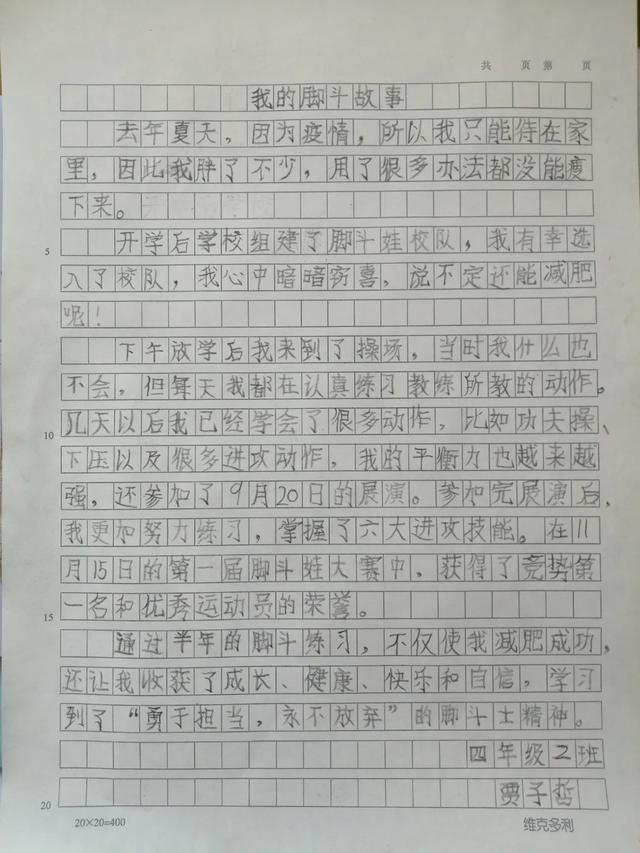 共 页 第 页
我的脚斗故事
去年夏天，因为疫情，所以我只能待在家
里，因此我胖了不少，用了很多办法都没能瘦
下来。
5 开学后学校组建了脚斗娃校队，我有幸选
入了校队，我心中暗暗窃喜，说不定还能减肥
呢！
下午放学后我来到了操场，当时我什么也
不会，但每天我都在认真练习教练所教的动作。
10 几天以后我已经学会了很多动作，比如功夫操、
下压以及很多进攻动作，我的平衡力也越来越
强，还参加了9月20日的展演。参加完展演后，
我更加努力练习，掌握了六大进攻技能。在11
月15日的第一届脚斗娃大赛中，获得了竞势第
15 一名和优秀运动员的荣誉。
通过半年的脚斗练习，不仅使我减肥成功，
还让我收获了成长、健康、快乐和自信，学习
到了“勇于担当，永不放弃”的脚斗士精神。
四年级2班
20 贾子哲
20×20=400 维克多利